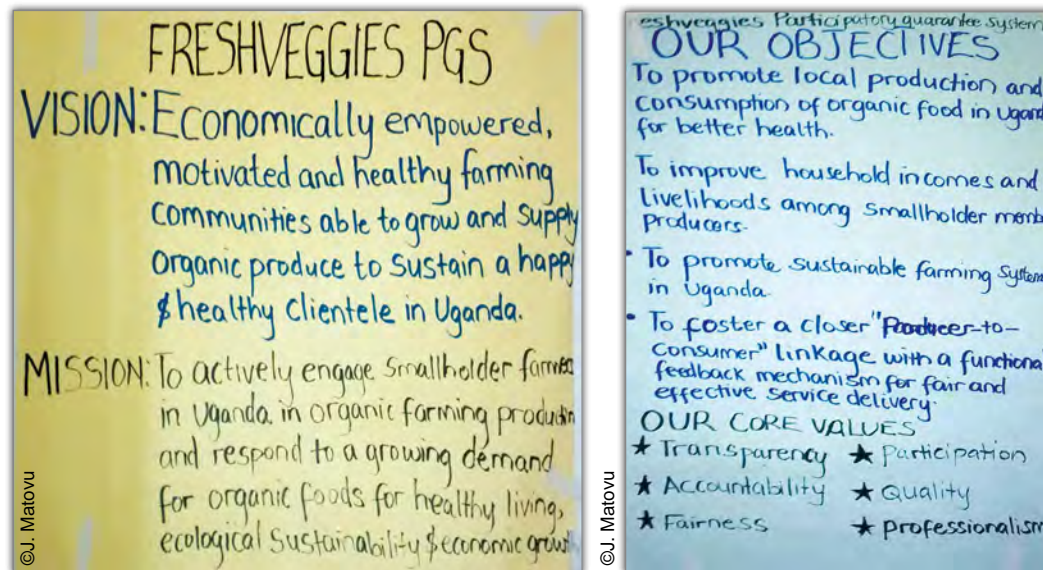 FRESHVEGGIES PGS
VISION: Economically empowered,
motivated and healthy farming
communities able to grow and supply
organic produce to sustain a happy
$ healthy clientele in Uganda.
MISSION: To actively engage smallholder farmers
in Uganda in organic farming production
and respond to a growing demand
for organic foods for healthy living,
ecological sustainability $ economic growth
©J. Matovu
eshveggies Participatory guarantee system
OUR OBJECTIVES
To promote local production and
consumption of organic food in Ugand
for better health.
To improve household incomes and
Livelihoods among smallholder memb
producers.
• To promote sustainable farming system
in Uganda.
• To foster a closer "Producer-to-
consumer" linkage with a functional
feedback mechanism for fair and
effective service delivery.
OUR CORE VALUES
★ Transparency ★ Participation
★ Accountability ★ Quality
★ Fairness ★ professionalism
©J. Matovu